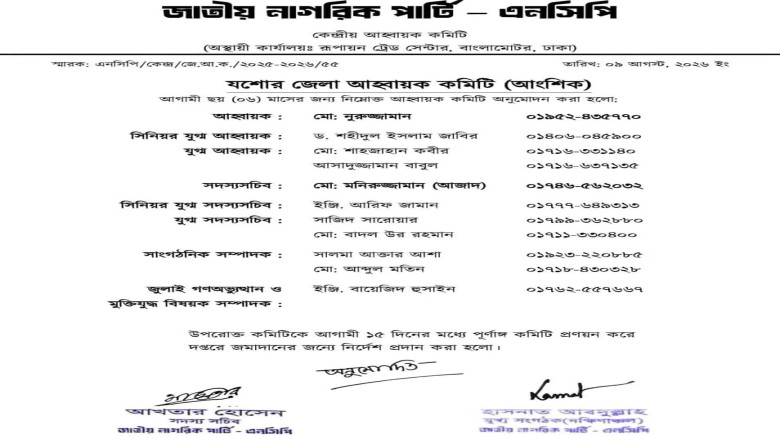 জাতীয় নাগরিক পার্টি – এনসিপি
কেন্দ্রীয় আহ্বায়ক কমিটি
(অস্থায়ী কার্যালয়ঃ রূপায়ন ট্রেড সেন্টার, বাংলামোটর, ঢাকা)
স্মারক: এনসিপি/কেন্দ্র/জে.আ.ক./২০২৫-২০২৬/৫৫ তারিখ: ০৯ আগস্ট, ২০২৬ ইং
যশোর জেলা আহ্বায়ক কমিটি (আংশিক)
আগামী ছয় (০৬) মাসের জন্য নিম্নোক্ত আহ্বায়ক কমিটি অনুমোদন করা হলো:
আহ্বায়ক : মো: নুরুজ্জামান ০১৯৫২-৪৩৫৭৭০
সিনিয়র যুগ্ম আহ্বায়ক : ড. শহীদুল ইসলাম জাবির ০১৪০৬-০৪৫৯০০
যুগ্ম আহ্বায়ক : মো: শাহজাহান কবীর ০১৭১৬-৩৩১১৪০
আসাদুজ্জামান বাবুল ০১৭১৬-৬৩৭১৩৫
সদস্যসচিব : মো: মনিরুজ্জামান (আজাদ) ০১৭৪৬-৫৬২০৩২
সিনিয়র যুগ্ম সদস্যসচিব : ইঞ্জি. আরিফ জামান ০১৭৭৭-৬৪৯৩১৩
যুগ্ম সদস্যসচিব : সাজিদ সারোয়ার ০১৭৯৯-৩৬২৮৮০
মো: বাদল উর রহমান ০১৭১১-৩৩০৪০০
সাংগঠনিক সম্পাদক : সালমা আক্তার আশা ০১৯২৩-২২০৮৮৫
মো: আব্দুল মতিন ০১৭১৮-৪৩০৩২৮
জুলাই গণঅভ্যুত্থান ও ইঞ্জি. বায়েজিদ হুসাইন ০১৭৬২-৫৫৭৬৬৭
মুক্তিযুদ্ধ বিষয়ক সম্পাদক :
উপরোক্ত কমিটিকে আগামী ১৫ দিনের মধ্যে পূর্ণাঙ্গ কমিটি প্রণয়ন করে
দপ্তরে জমাদানের জন্যে নির্দেশ প্রদান করা হলো।
অনুমোদিত
আখতার হোসেন
সদস্য সচিব
জাতীয় নাগরিক পার্টি - এনসিপি
হাসনাত আবদুল্লাহ
মুখ্য সংগঠক(দক্ষিণাঞ্চল)
জাতীয় নাগরিক পার্টি - এনসিপি